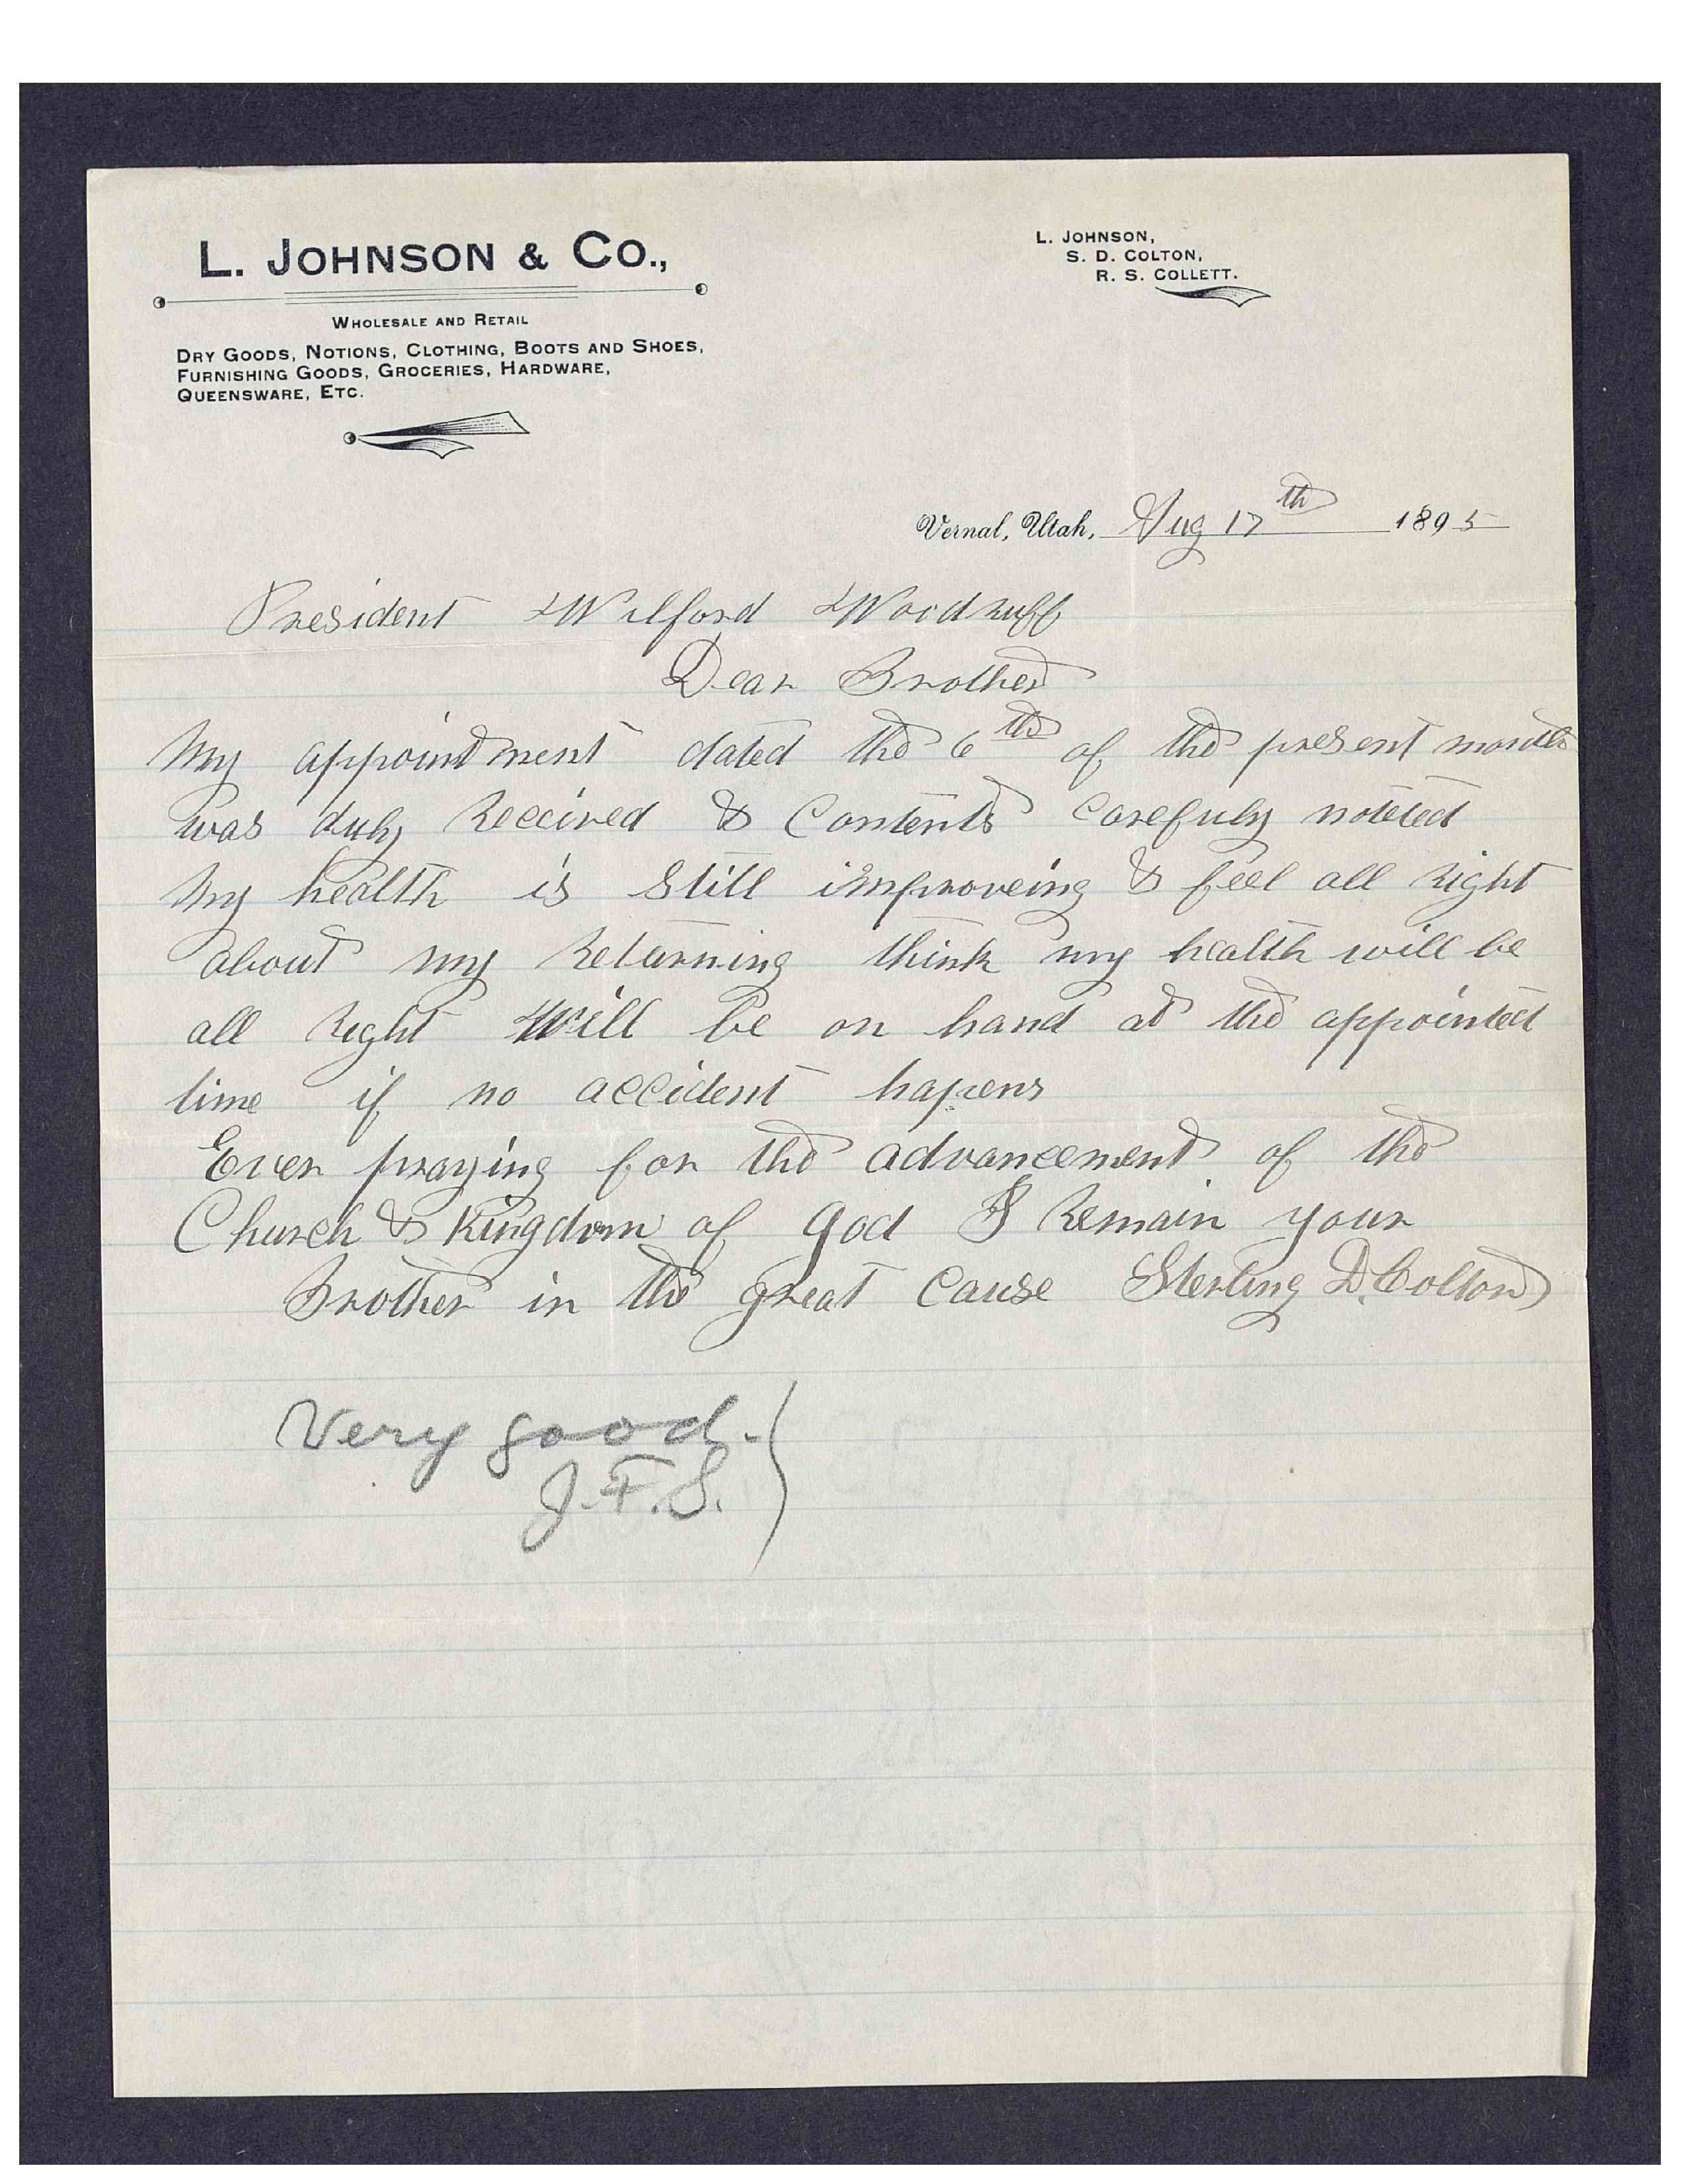 L. JOHNSON & CO.,
L. JOHNSON,
S. D. COLTON,
R. S. COLLETT.
WHOLESALE AND RETAIL
DRY GOODS, NOTIONS, CLOTHING, BOOTS AND SHOES,
FURNISHING GOODS, GROCERIES, HARDWARE,
QUEENSWARE, ETC.
Vernal, Utah, Aug 17th 1895
President Wilford Woodruff
Dear Brother
My appointment dated the 6th of the present month
was duly Received & Contents Carefuly noteted
My health is Still improveing & feel all right
about my Returning think my health will be
all Right Will be on hand at the appointed
time if no accident hapens
Ever praying for the advancement of the
Church & Kingdom of God I Remain your
Brother in the great Cause Sterling D. Colton
Very good.
J.F.S.